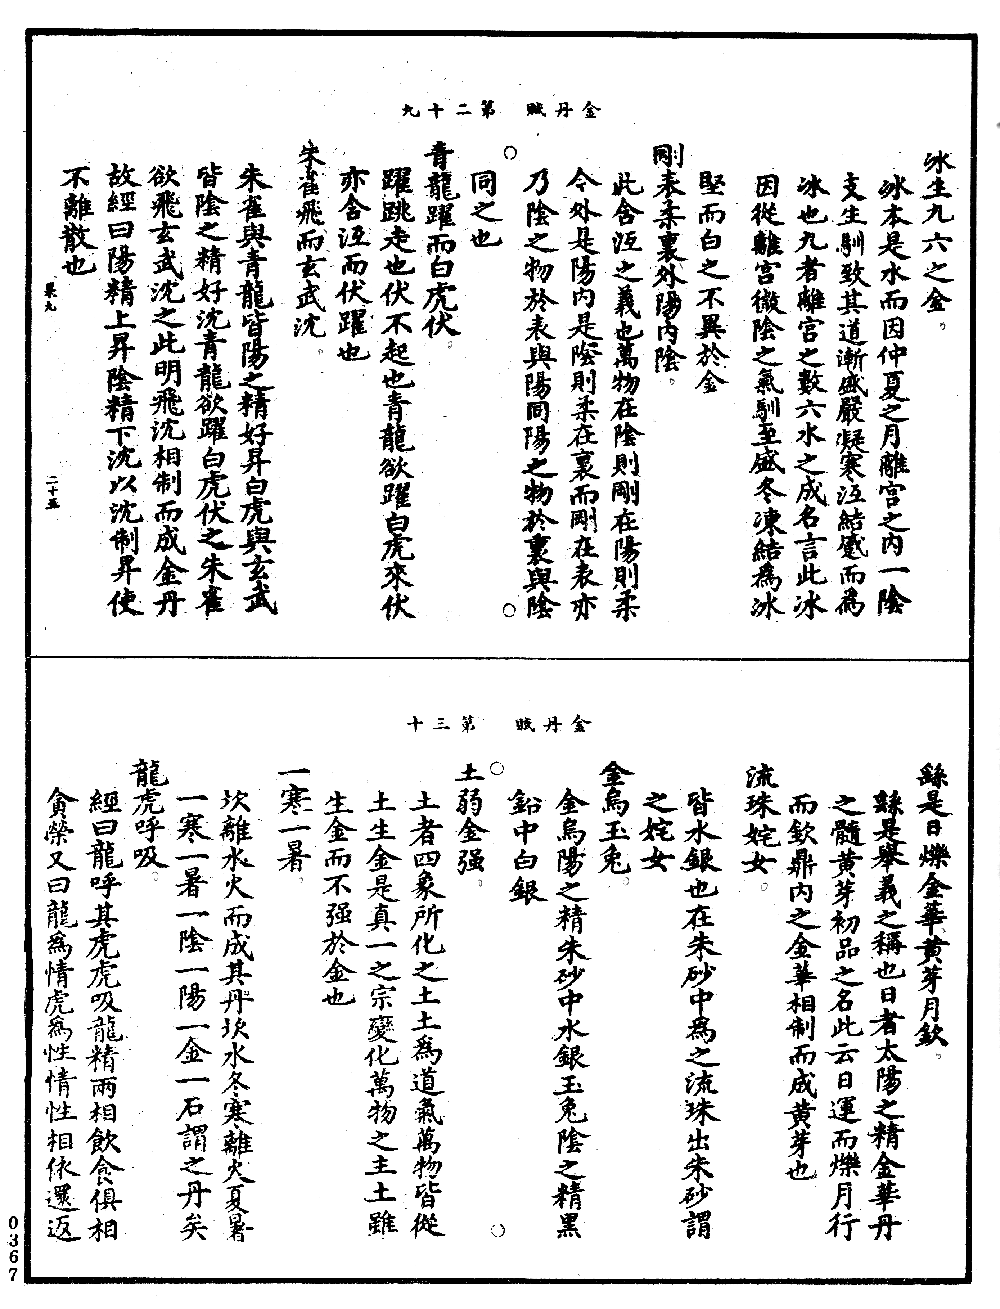 金丹賦　第二十九
冰生九六之金。
冰本是水而因仲夏之月離宮之内一陰
支生馴致其道漸盛嚴凝寒沍結蹙而為
冰也九者離宮之數六水之成名言此冰
因從離宮微陰之氣馴至盛冬凍結為冰
堅而白之不異於金
剛表柔裏外陽内陰。
此含沍之義也萬物在陰則剛在陽則柔
令外是陽内是陰則柔在裏而剛在表亦
乃陰之物於表與陽同陽之物於裏與陰
同之也
青龍躍而白虎伏。
躍跳走也伏不起也青龍欲躍白虎來伏
亦含沍而伏躍也
朱雀飛而玄武沈。
朱雀與青龍皆陽之精好昇白虎與玄武
皆陰之精好沈青龍欲躍白虎伏之朱雀
欲飛玄武沈之此明飛沈相制而成金丹
故經曰陽精上昇陰精下沈以沈制昇使
不離散也
果九
二十五
金丹賦　第三十
繇是日爍金華黄芽月欽。
繇是舉義之稱也日者太陽之精金華丹
之髓黄芽初品之名此云日運而爍月行
而欽鼎内之金華相制而成黄芽也
流珠姹女。
皆水銀也在朱砂中為之流珠出朱砂謂
之姹女
金烏玉兔。
金烏陽之精朱砂中水銀玉兔陰之精黑
鉛中白銀
土弱金强。
土者四象所化之土土為道氣萬物皆從
土生金是真一之宗變化萬物之主土雖
生金而不强於金也
一寒一暑。
坎離水火而成其丹坎水冬寒離火夏暑
一寒一暑一陰一陽一金一石謂之丹矣
龍虎呼吸。
經曰龍呼其虎虎吸龍精兩相飲食俱相
貪榮又曰龍為情虎為性情性相依還返
0367